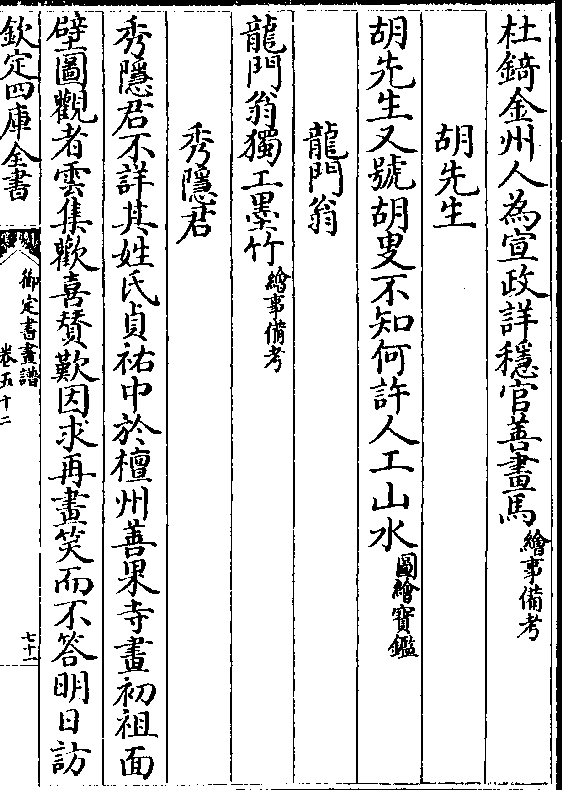 杜錡金州人為宣政詳穩官善畫馬繪事備考
胡先生
胡先生又號胡叟不知何許人工山水圖繪寶鑑
龍門翁
龍門翁獨工墨竹繪事備考
秀隱君
秀隱君不詳其姓氏貞祐中於檀州善果寺畫初祖面
壁圖觀者雲集歡喜賛歎因求再畫笑而不答明日訪
欽定四庫全書
御定書畫譜
卷五十二
七十一